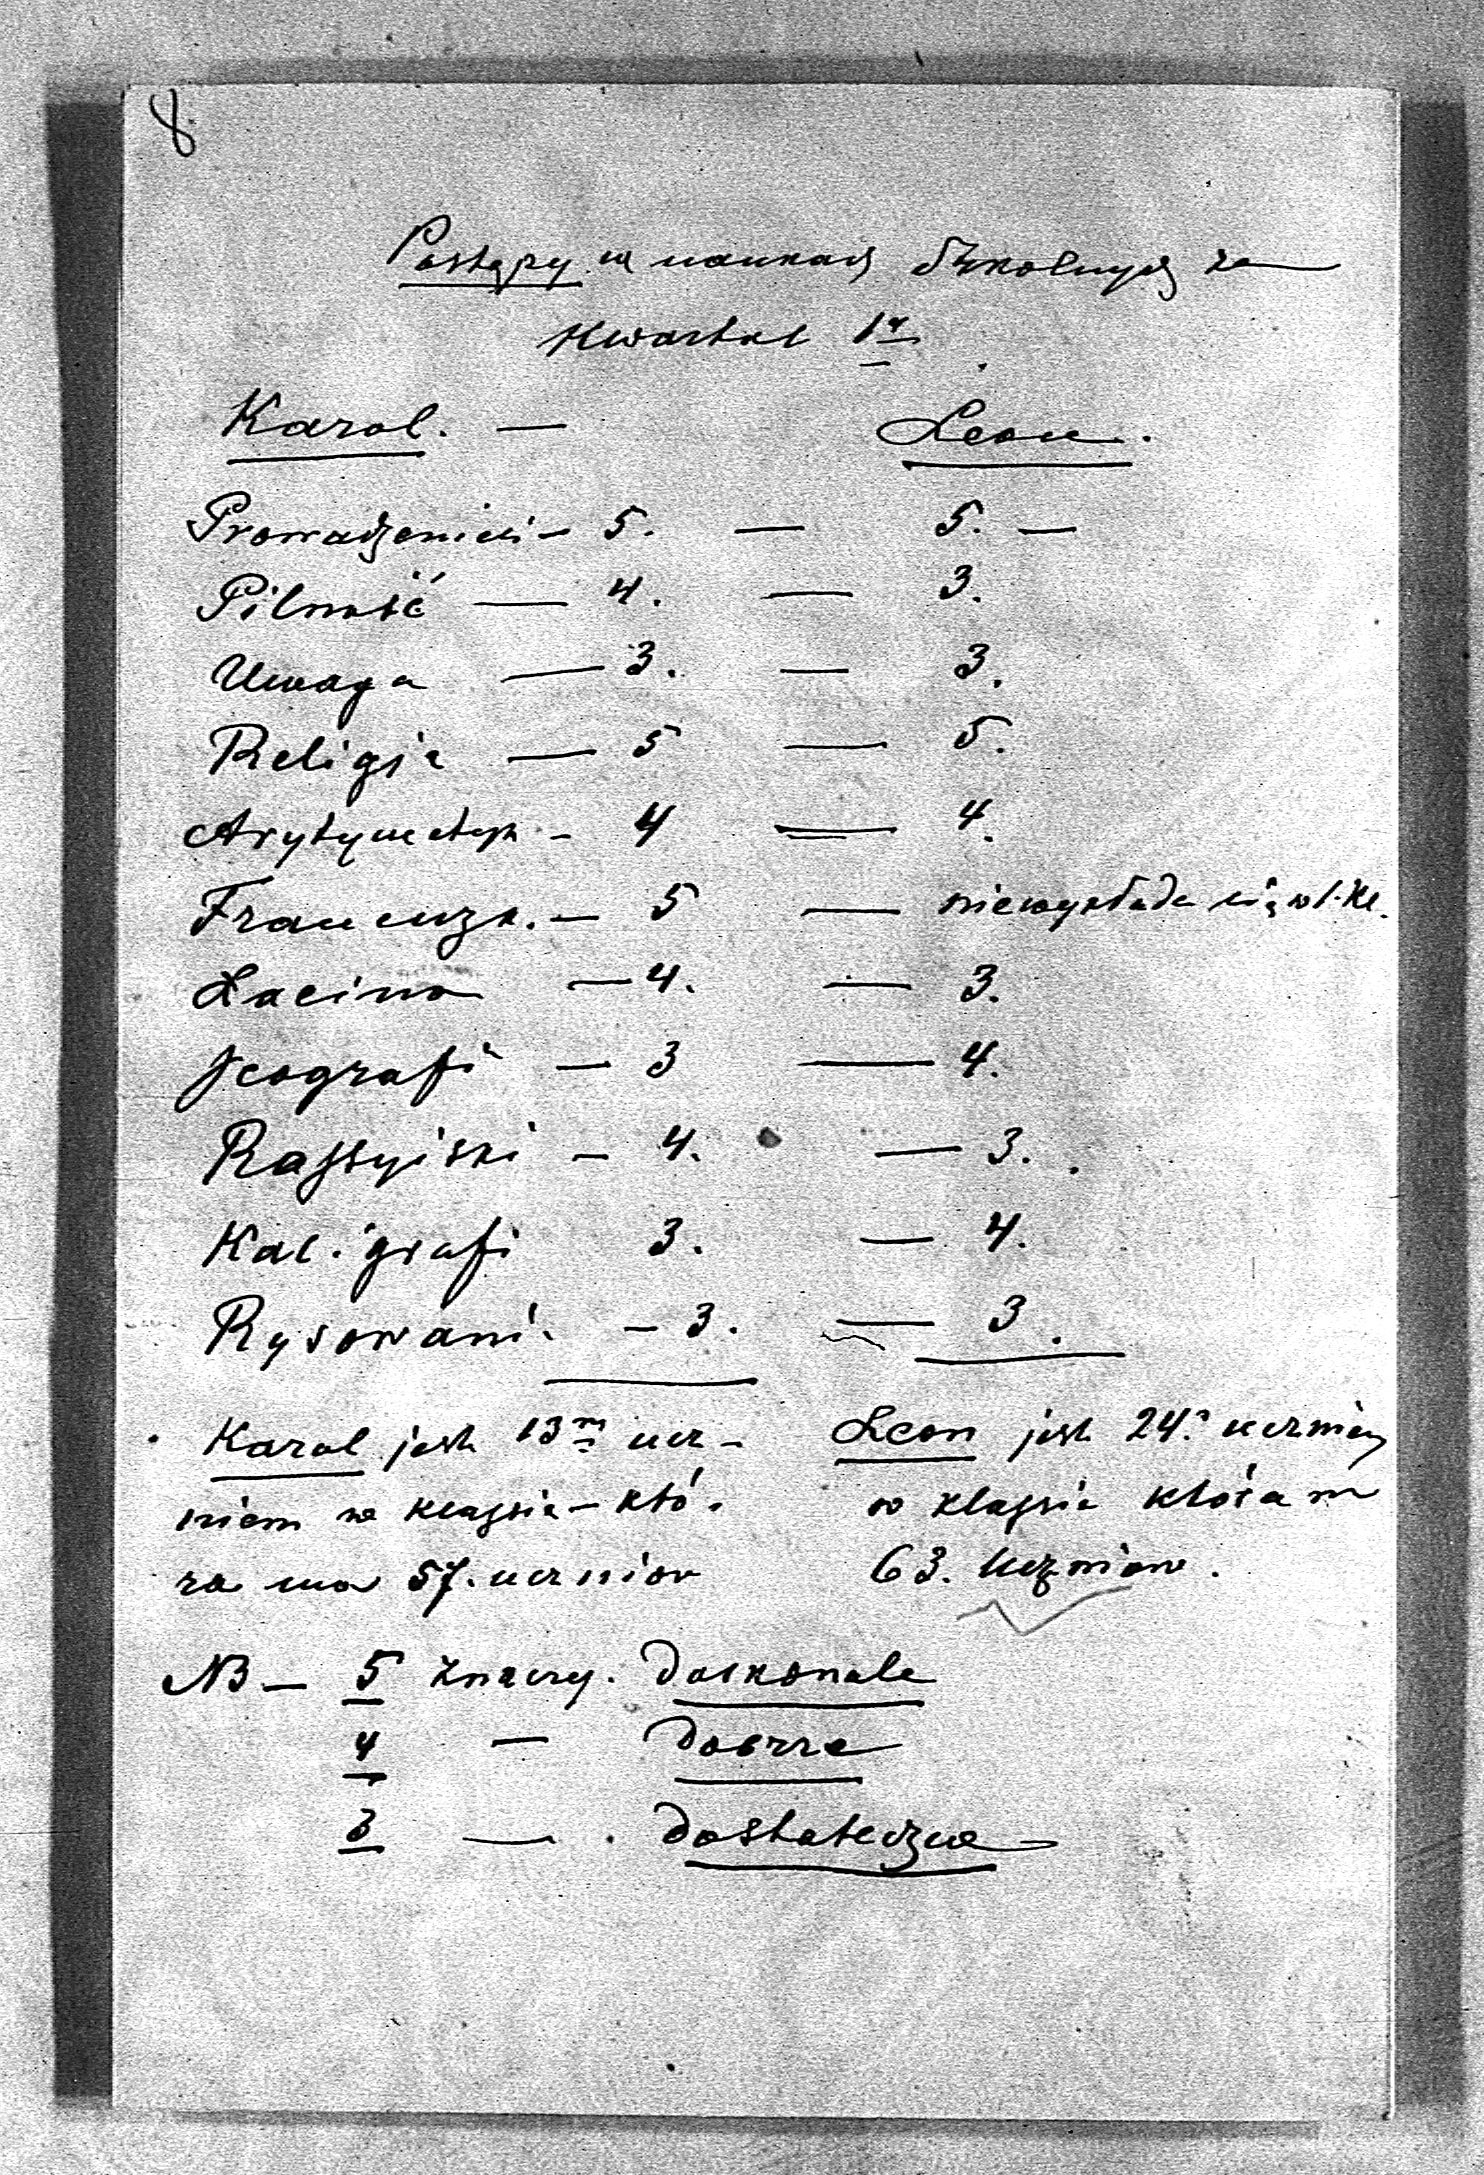 8
Postępy w naukach szkolnych za
Kwartał 1y
Karol. — Leon.
Prowadzenie się — 5. — 5. —
Pilność — 4. — 3.
Uwaga — 3. — 3.
Religja — 5 — 5.
Arytmetyk — 4 — 4.
Francuzk. — 5 — niewykłada się w 1. Kl.
Łacina — 4. — 3.
Jeografi — 3 — 4.
Rossyiski — 4. — 3.
Kaligrafi 3. — 4.
Rysowani — 3. — 3.
Karol jest 13m ucz- 
niem w klassie — któ-
ra ma 57. uczniow
Leon jest 24. uczniem
w klassie która m
63. Uczniow.
NB — 5 znaczy. Doskonale
4 — Dobrze
3 — . Dostateczne